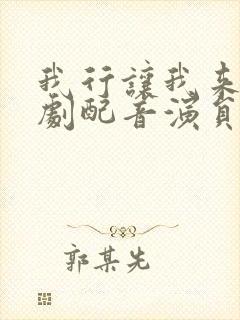 我行讓我來
劇配音演員
郭某先